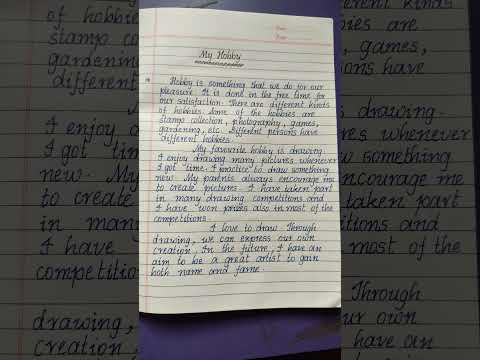 Date
Page
My Hobby
Hobby is something that we do for our
pleasure. It is done in the free time for
our satisfaction. There are different kinds
of hobbies. Some of the hobbies are
stamp collection, photography, games,
gardening, etc. Different persons have
different hobbies.
My favourite hobby is drawing.
I enjoy drawing many pictures whenever
I got time. I practice to draw something
new. My parents always encourage me
to create pictures. I have taken part
in many drawing competitions and
I have won prizes also in most of the
competitions.
I love to draw. Through
drawing, we can express our own
creation. In the future, I have an
aim to be a great artist to gain
both name and fame.